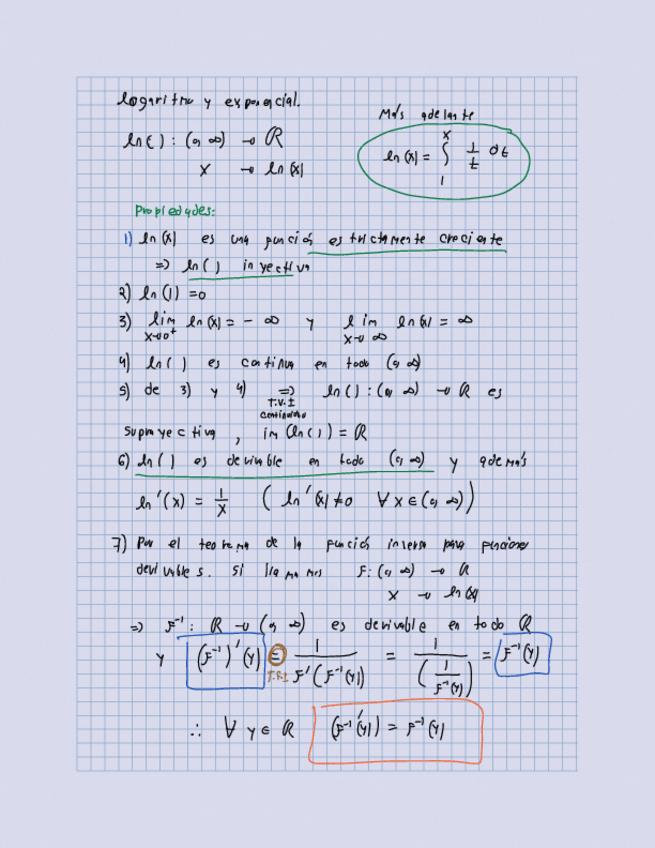 logaritmo y exponencial.
Más adelante
ln( ) : (0, ∞) → ℝ
x → ln(x)
ln(x) = ∫₁ˣ 1/t dt
Propiedades:
1) ln(x) es una función estrictamente creciente
=> ln( ) inyectiva
2) ln(1) = 0
3) lim x→0⁺ ln(x) = - ∞ y lim x→∞ ln(x) = ∞
4) ln( ) es continua en todo (0, ∞)
5) de 3) y 4) => ln( ) : (0, ∞) → ℝ es
T.V.I
continuidad
suprayectiva , im(ln( )) = ℝ
6) ln( ) es derivable en todo (0, ∞) y además
ln'(x) = 1/x ( ln'(x) ≠ 0 ∀ x ∈ (0, ∞))
7) Por el teorema de la función inversa para funciones
derivables. Si llamamos F: (0, ∞) → ℝ
x → ln(x)
=> F⁻¹ : ℝ → (0, ∞) es derivable en todo ℝ
y (F⁻¹)'(y) = 1/F'(F⁻¹(y)) = 1/(1/F⁻¹(y)) = F⁻¹(y)
T.F.I
∴ ∀ y ∈ ℝ (F⁻¹'(y)) = F⁻¹(y)